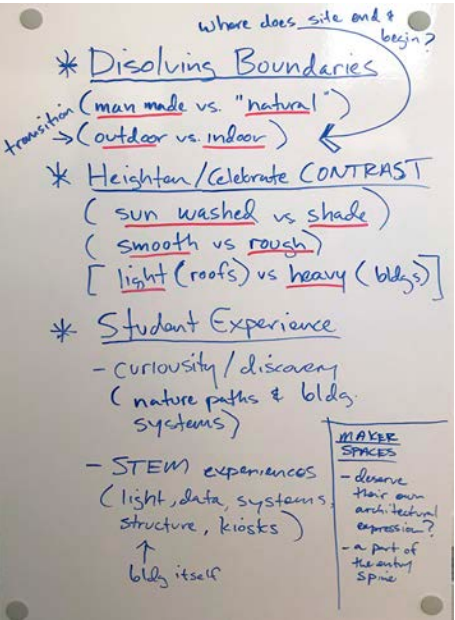 where does site end &
begin?
* Disolving Boundaries
transition (man made vs. "natural")
→ (outdoor vs. indoor)
* Heighten/Celebrate CONTRAST
( sun washed vs shade )
( smooth vs rough )
[ light (roofs) vs heavy (bldgs) ]
* Student Experience
- curiousity / discovery
( nature paths & bldg.
systems )
- STEM experiences
( light, data, systems,
structure, kiosks )
↑
bldg itself
MAKER
SPACES
- deserve
their own
architectural
expression?
- a part of
the entry
spine